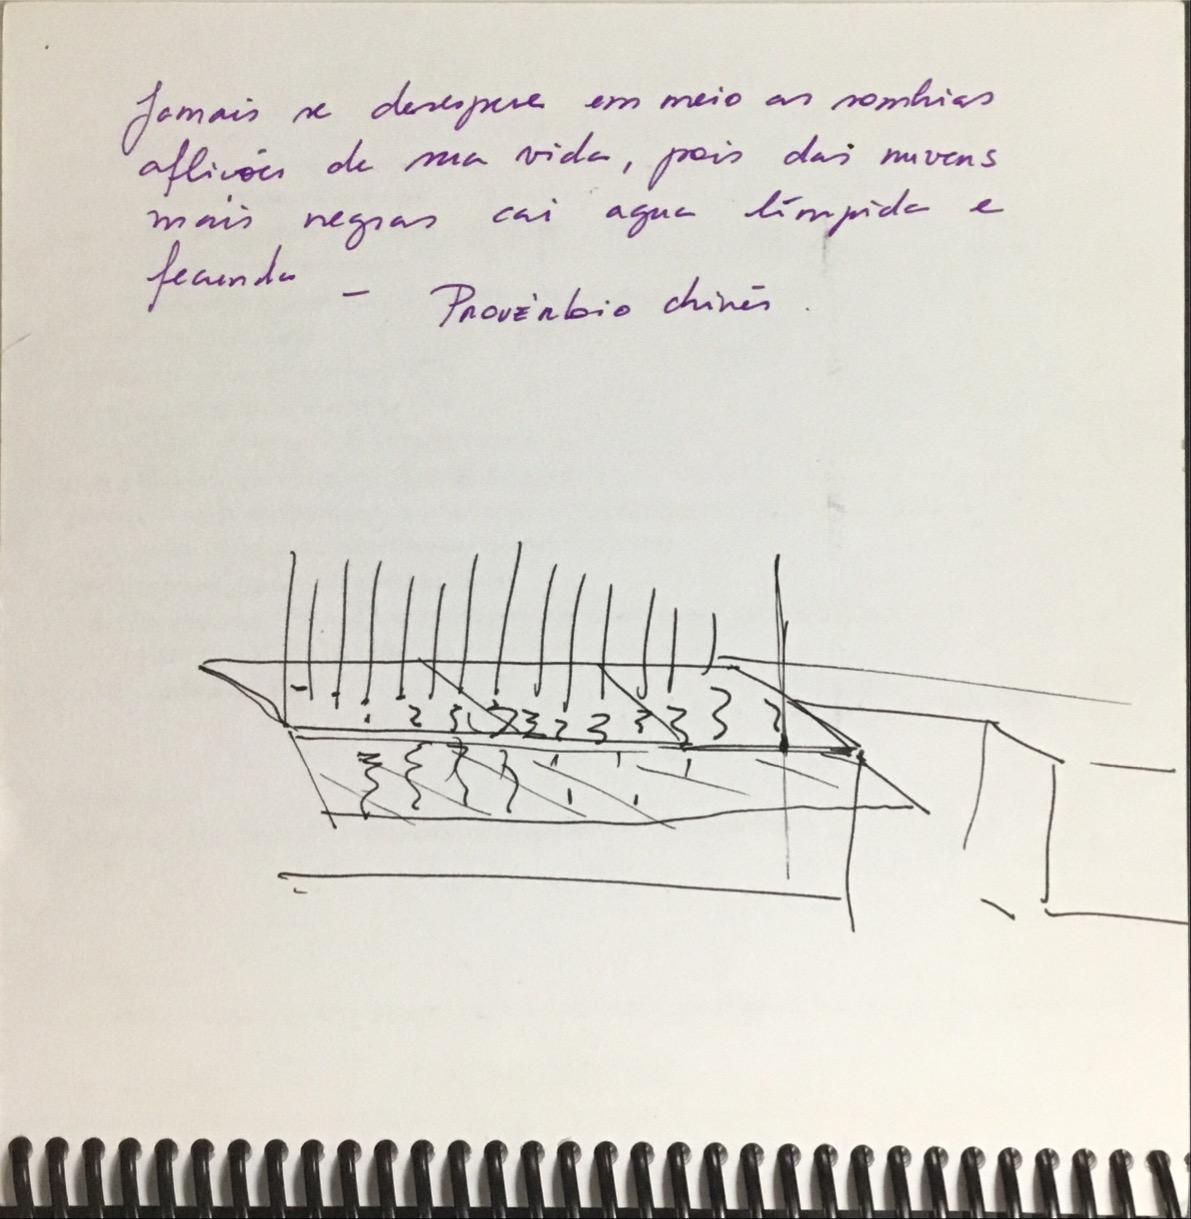 Jamais se desespere em meio as sombrias
aflições de sua vida, pois das nuvens
mais negras cai agua límpida e
fecunda - Provérbio chinês.